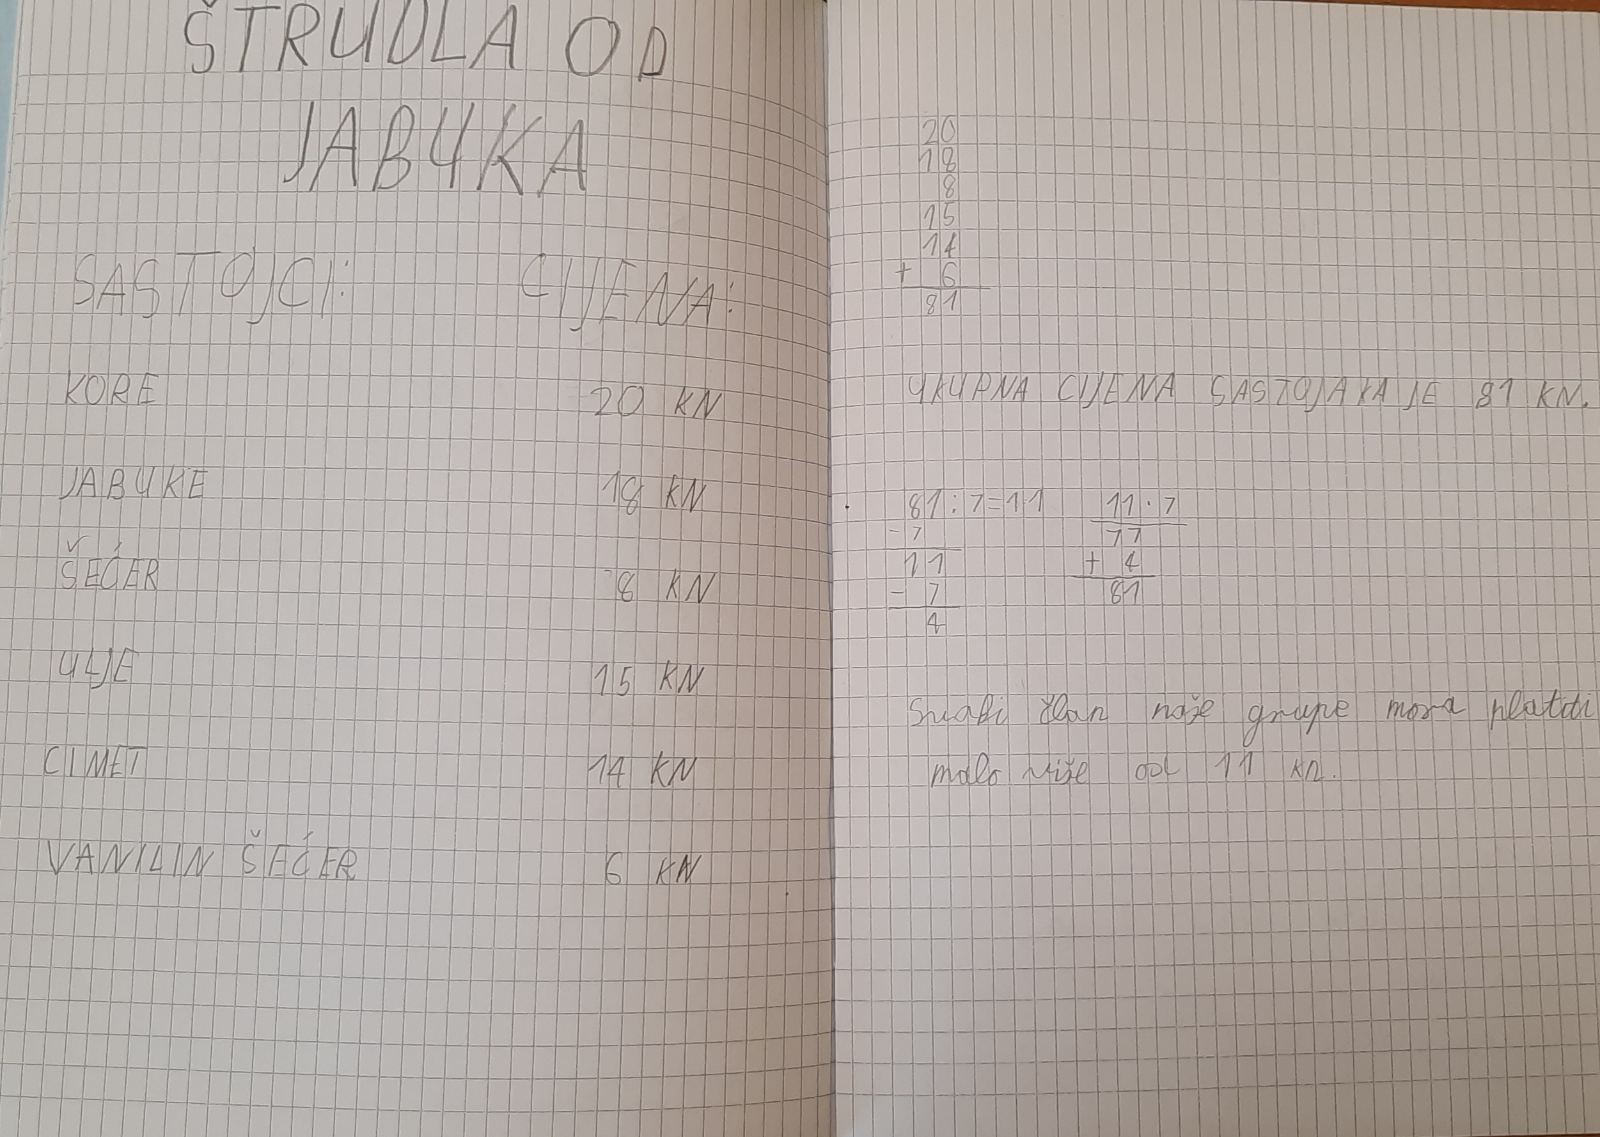 ŠTRUDLA OD
JABUKA
SASTOJCI: CIJENA:
KORE 20 KN
JABUKE 18 KN
ŠEĆER 8 KN
ULJE 15 KN
CIMET 14 KN
VANILIN ŠEĆER 6 KN
20
18
8
15
14
+ 6
81
UKUPNA CIJENA SASTOJAKA JE 81 KN.
81:7=11 11·7
-7 77
11 + 4
- 7 81
4
Svaki član naše grupe mora platiti
malo više od 11 kn.